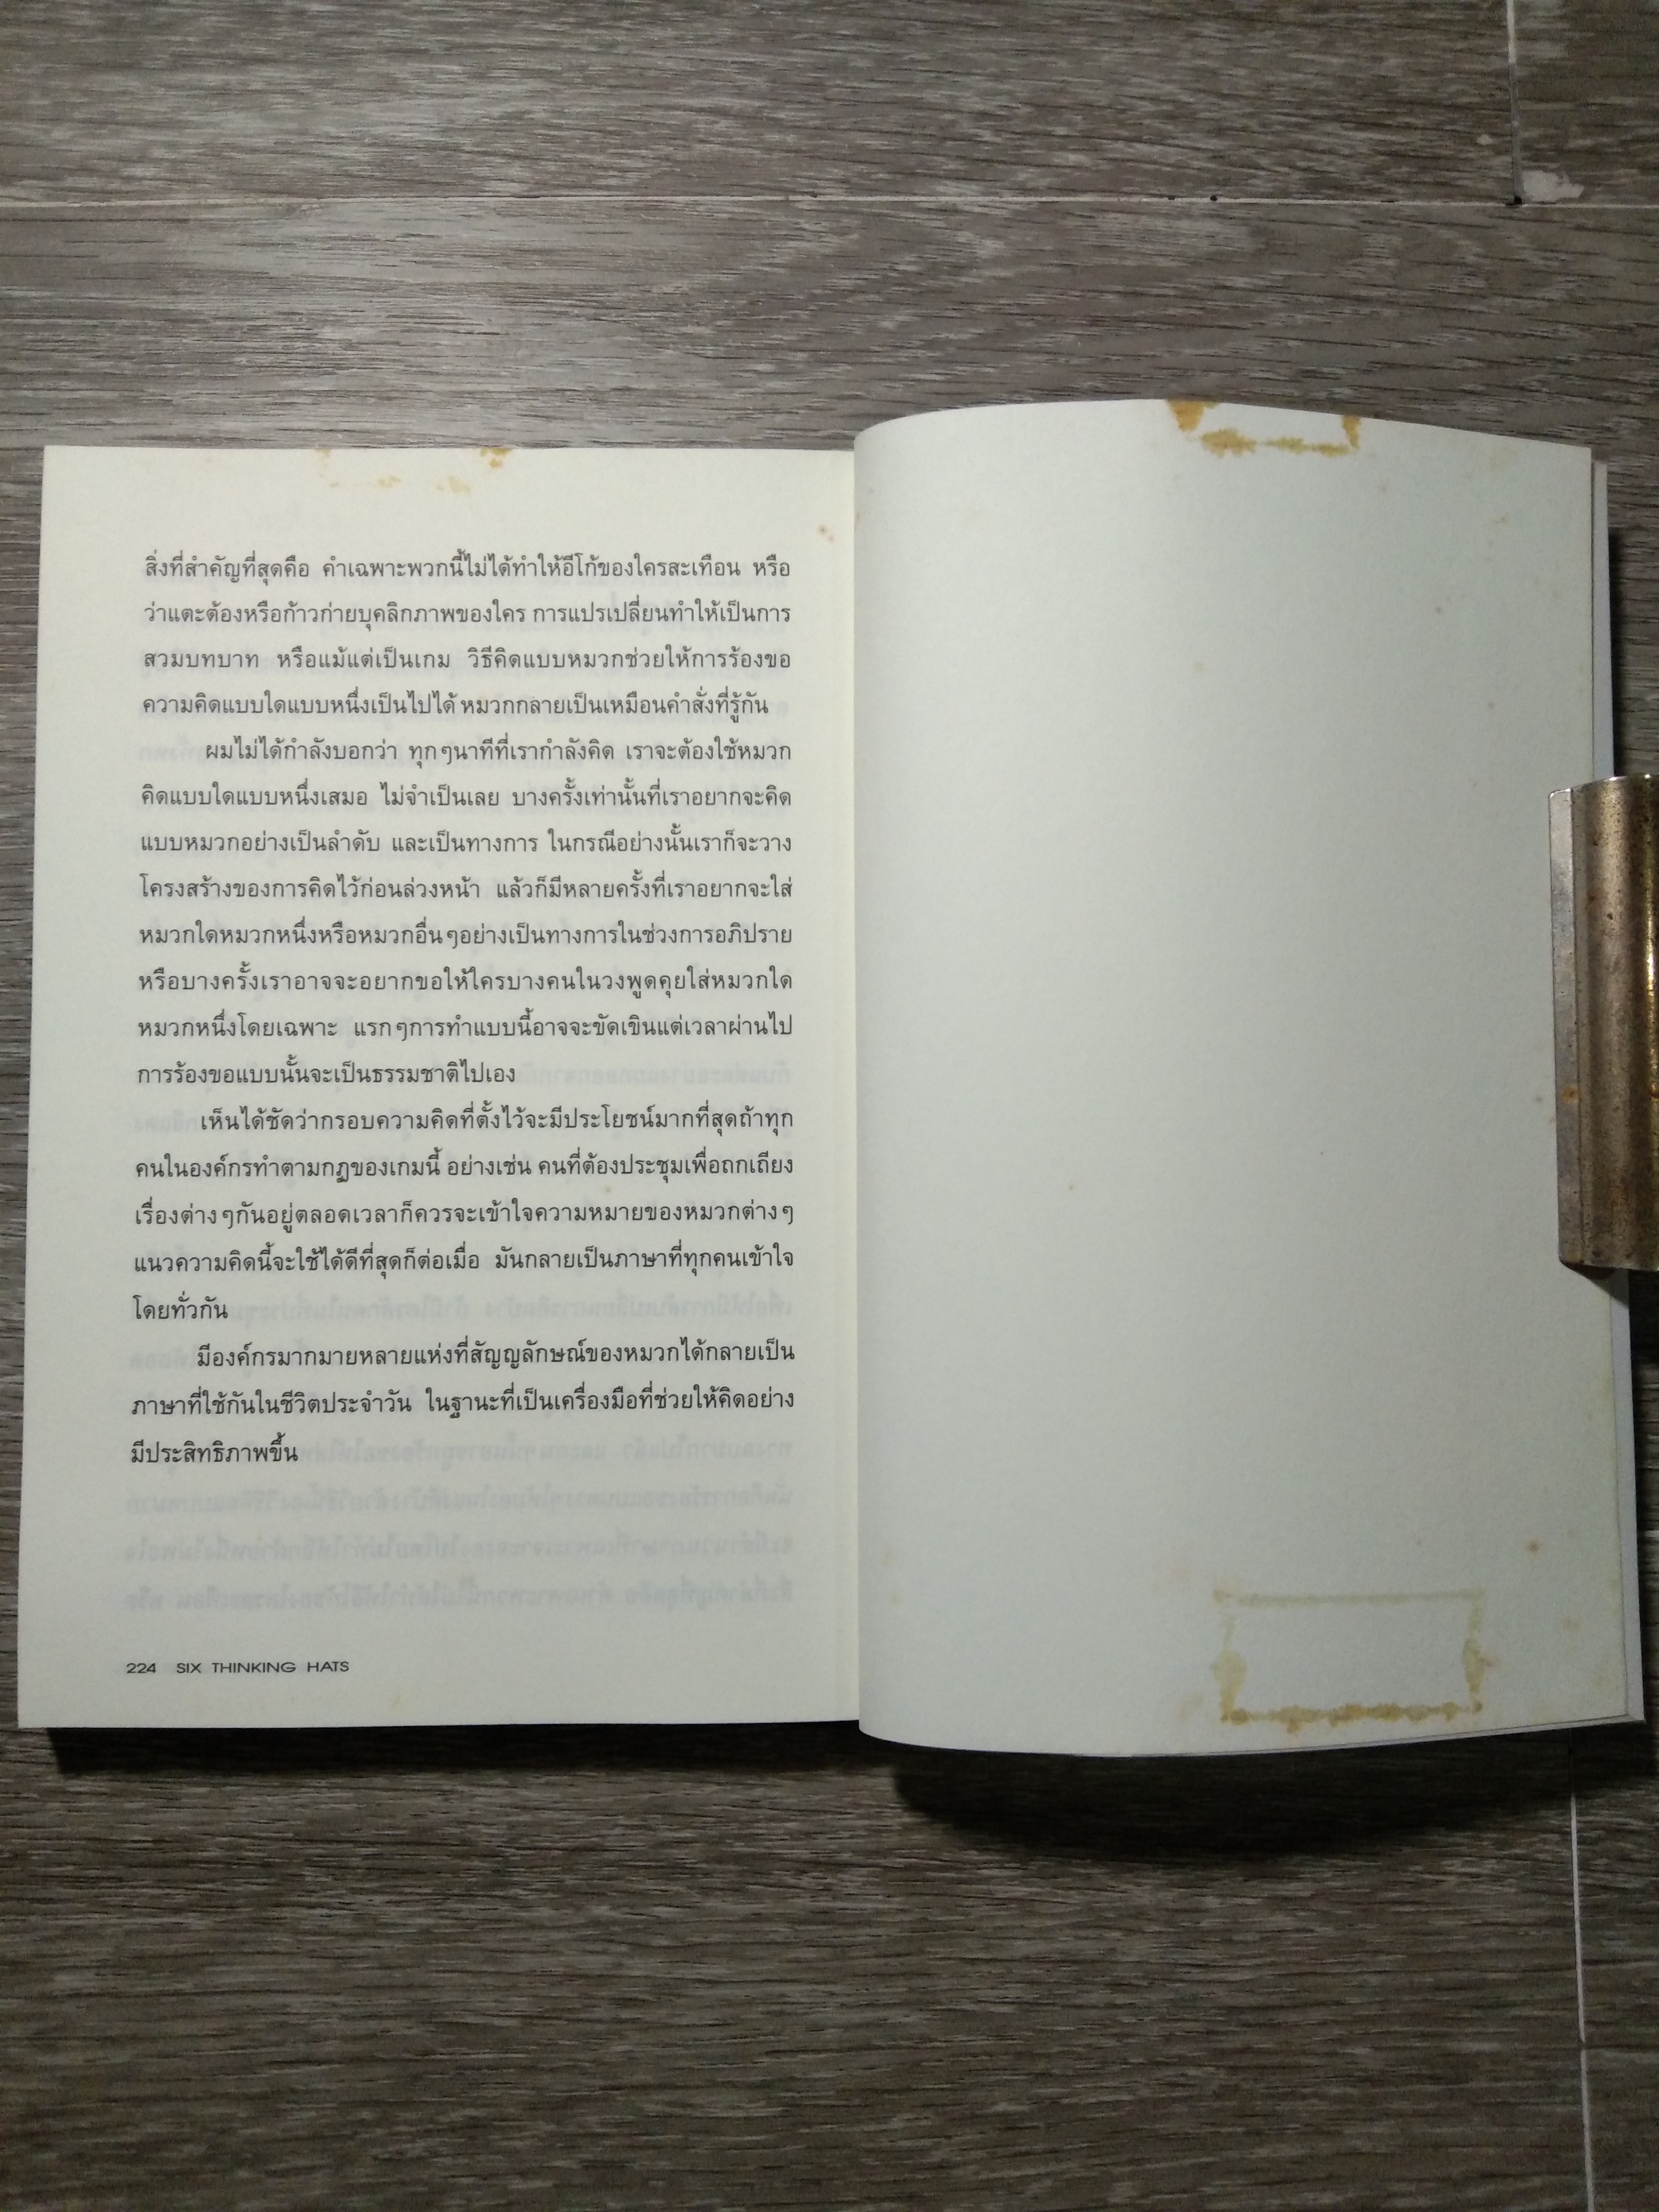 สิ่งที่สำคัญที่สุดคือ คำเฉพาะพวกนี้ไม่ได้ทำให้อีโก้ของใครสะเทือน หรือ
ว่าแตะต้องหรือก้าวก่ายบุคลิกภาพของใคร การแปรเปลี่ยนทำให้เป็นการ
สวมบทบาท หรือแม้แต่เป็นเกม วิธีคิดแบบหมวกช่วยให้การร้องขอ
ความคิดแบบใดแบบหนึ่งเป็นไปได้ หมวกกลายเป็นเหมือนคำสั่งที่รู้กัน
ผมไม่ได้กำลังบอกว่า ทุกๆนาทีที่เรากำลังคิด เราจะต้องใช้หมวก
คิดแบบใดแบบหนึ่งเสมอ ไม่จำเป็นเลย บางครั้งเท่านั้นที่เราอยากจะคิด
แบบหมวกอย่างเป็นลำดับ และเป็นทางการ ในกรณีอย่างนั้นเราก็จะวาง
โครงสร้างของการคิดไว้ก่อนล่วงหน้า แล้วก็มีหลายครั้งที่เราอยากจะใส่
หมวกใดหมวกหนึ่งหรือหมวกอื่นๆอย่างเป็นทางการในช่วงการอภิปราย
หรือบางครั้งเราอาจจะอยากขอให้ใครบางคนในวงพูดคุยใส่หมวกใด
หมวกหนึ่งโดยเฉพาะ แรกๆการทำแบบนี้อาจจะขัดเขินแต่เวลาผ่านไป
การร้องขอแบบนั้นจะเป็นธรรมชาติไปเอง
เห็นได้ชัดว่ากรอบความคิดที่ตั้งไว้จะมีประโยชน์มากที่สุดถ้าทุก
คนในองค์กรทำตามกฏของเกมนี้ อย่างเช่น คนที่ต้องประชุมเพื่อถกเถียง
เรื่องต่างๆกันอยู่ตลอดเวลาก็ควรจะเข้าใจความหมายของหมวกต่างๆ
แนวความคิดนี้จะใช้ได้ดีที่สุดก็ต่อเมื่อ มันกลายเป็นภาษาที่ทุกคนเข้าใจ
โดยทั่วกัน
มีองค์กรมากมายหลายแห่งที่สัญญลักษณ์ของหมวกได้กลายเป็น
ภาษาที่ใช้กันในชีวิตประจำวัน ในฐานะที่เป็นเครื่องมือที่ช่วยให้คิดอย่าง
มีประสิทธิภาพขึ้น
224 SIX THINKING HATS